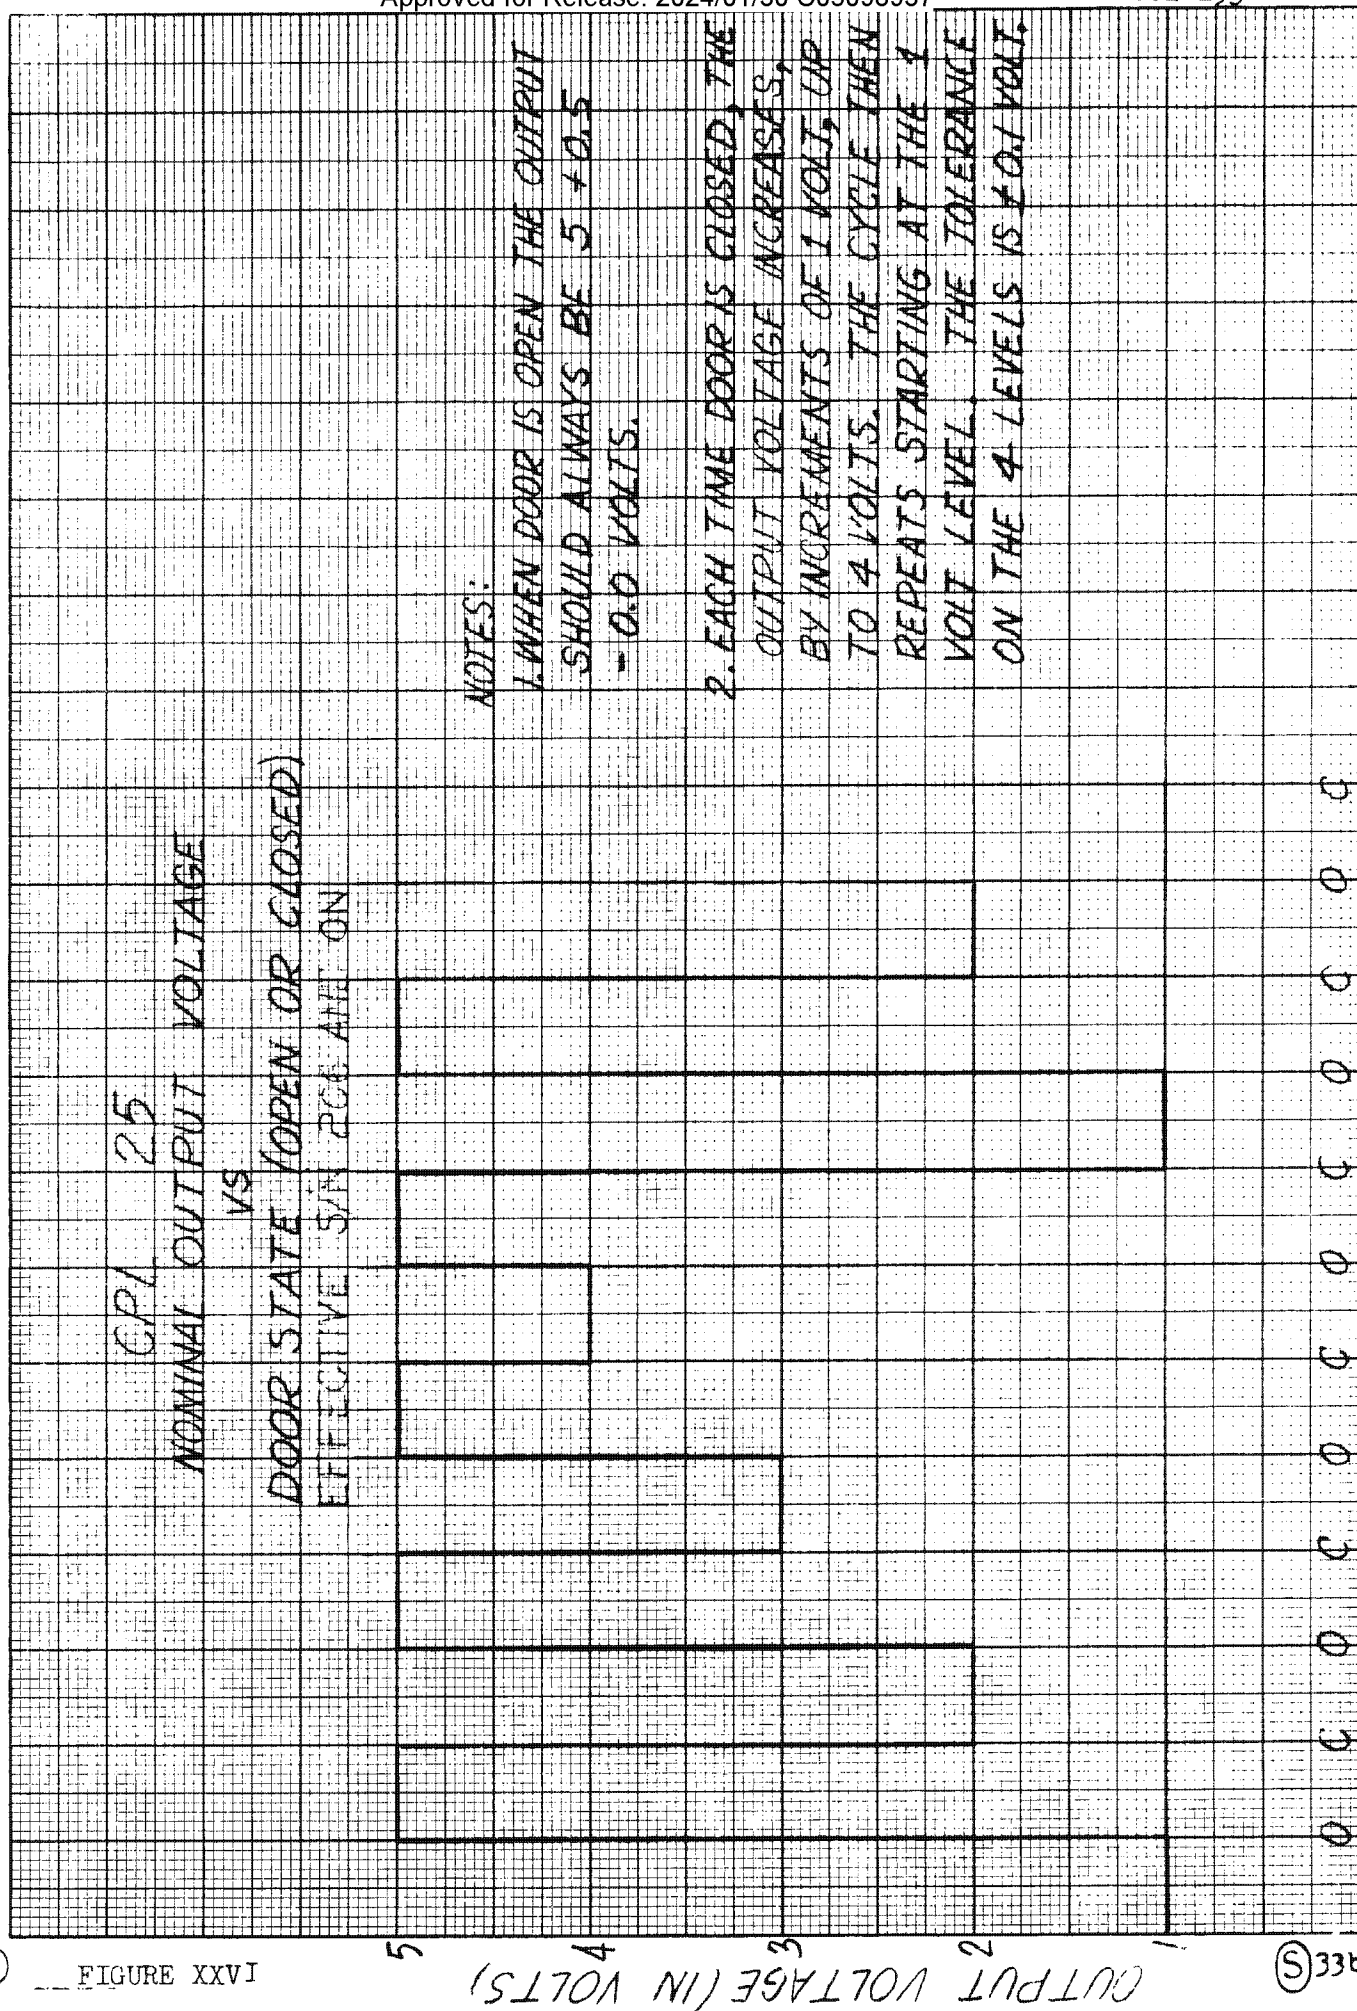 Approved for Release: 2024/01/30 C05098957
CPL 25
NOMINAL OUTPUT VOLTAGE
VS
DOOR STATE (OPEN OR CLOSED)
EFFECTIVE S/N 206 AND ON
NOTES:
1. WHEN DOOR IS OPEN THE OUTPUT
SHOULD ALWAYS BE 5 + 0.5
- 0.0 VOLTS.
2. EACH TIME DOOR IS CLOSED, THE
OUTPUT VOLTAGE INCREASES,
BY INCREMENTS OF 1 VOLT, UP
TO 4 VOLTS. THE CYCLE THEN
REPEATS STARTING AT THE 1
VOLT LEVEL. THE TOLERANCE
ON THE 4 LEVELS IS ±0.1 VOLT.
OUTPUT VOLTAGE (IN VOLTS)
5
4
3
2
1
O C O C O C O C O C O C
FIGURE XXVI
S